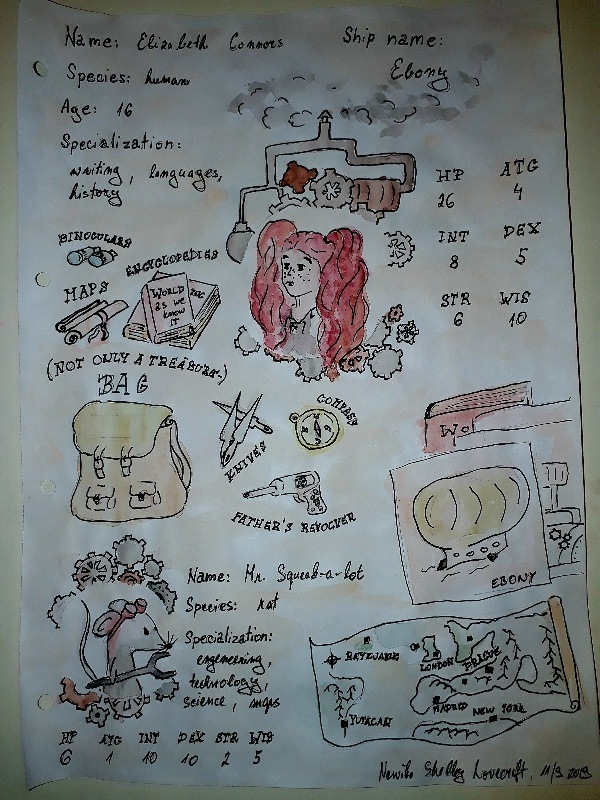 Name: Elizabeth Connors
Ship name:
Ebony
Species: human
Age: 16
Specialization:
writing, languages,
history
HP ATG
26 4
INT DEX
8 5
STR WIS
6 10
BINOCULARS
ENCYCLOPEDIES
MAPS
WORLD
AS WE
KNOW
IT
(NOT ONLY A TREASURE-)
BAG
KNIVES
COMPASS
FATHER'S REVOLVER
Wo
EBONY
Name: Mr. Squeak-a-lot
Species: rat
Specialization:
engeneering,
technology,
science, maps
HP ATG INT DEX STR WIS
6 1 10 10 2 5
LONDON
PRAGUE
MADRID
NEW YORK
YUCATAN
Shelley Lovecraft, 11/9 2019